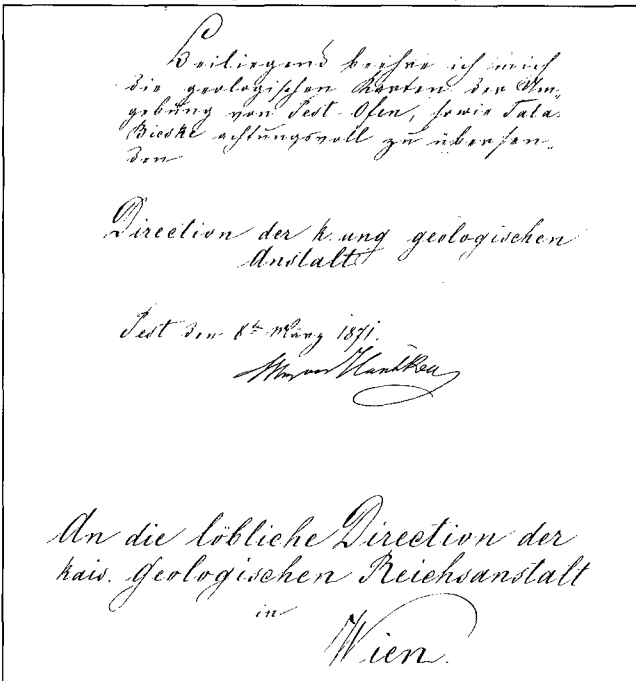 Beiliegend beehre ich mich
die geologischen Karten der Um-
gebung von Pest-Ofen, sowie Tata-
Bicske achtungsvoll zu übersen-
den
Direction der k. ung geologischen
Anstalt
Pest den 8ten März 1871.
Hantken
An die löbliche Direction der
kais. Geologischen Reichsanstalt
in
Wien.